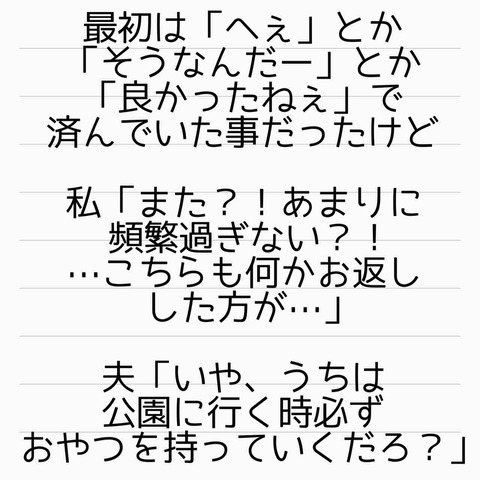 最初は「へぇ」とか
「そうなんだー」とか
「良かったねぇ」で
済んでいた事だったけど
私「また？！あまりに
頻繁過ぎない？！
…こちらも何かお返し
した方が…」
夫「いや、うちは
公園に行く時必ず
おやつを持っていくだろ？」